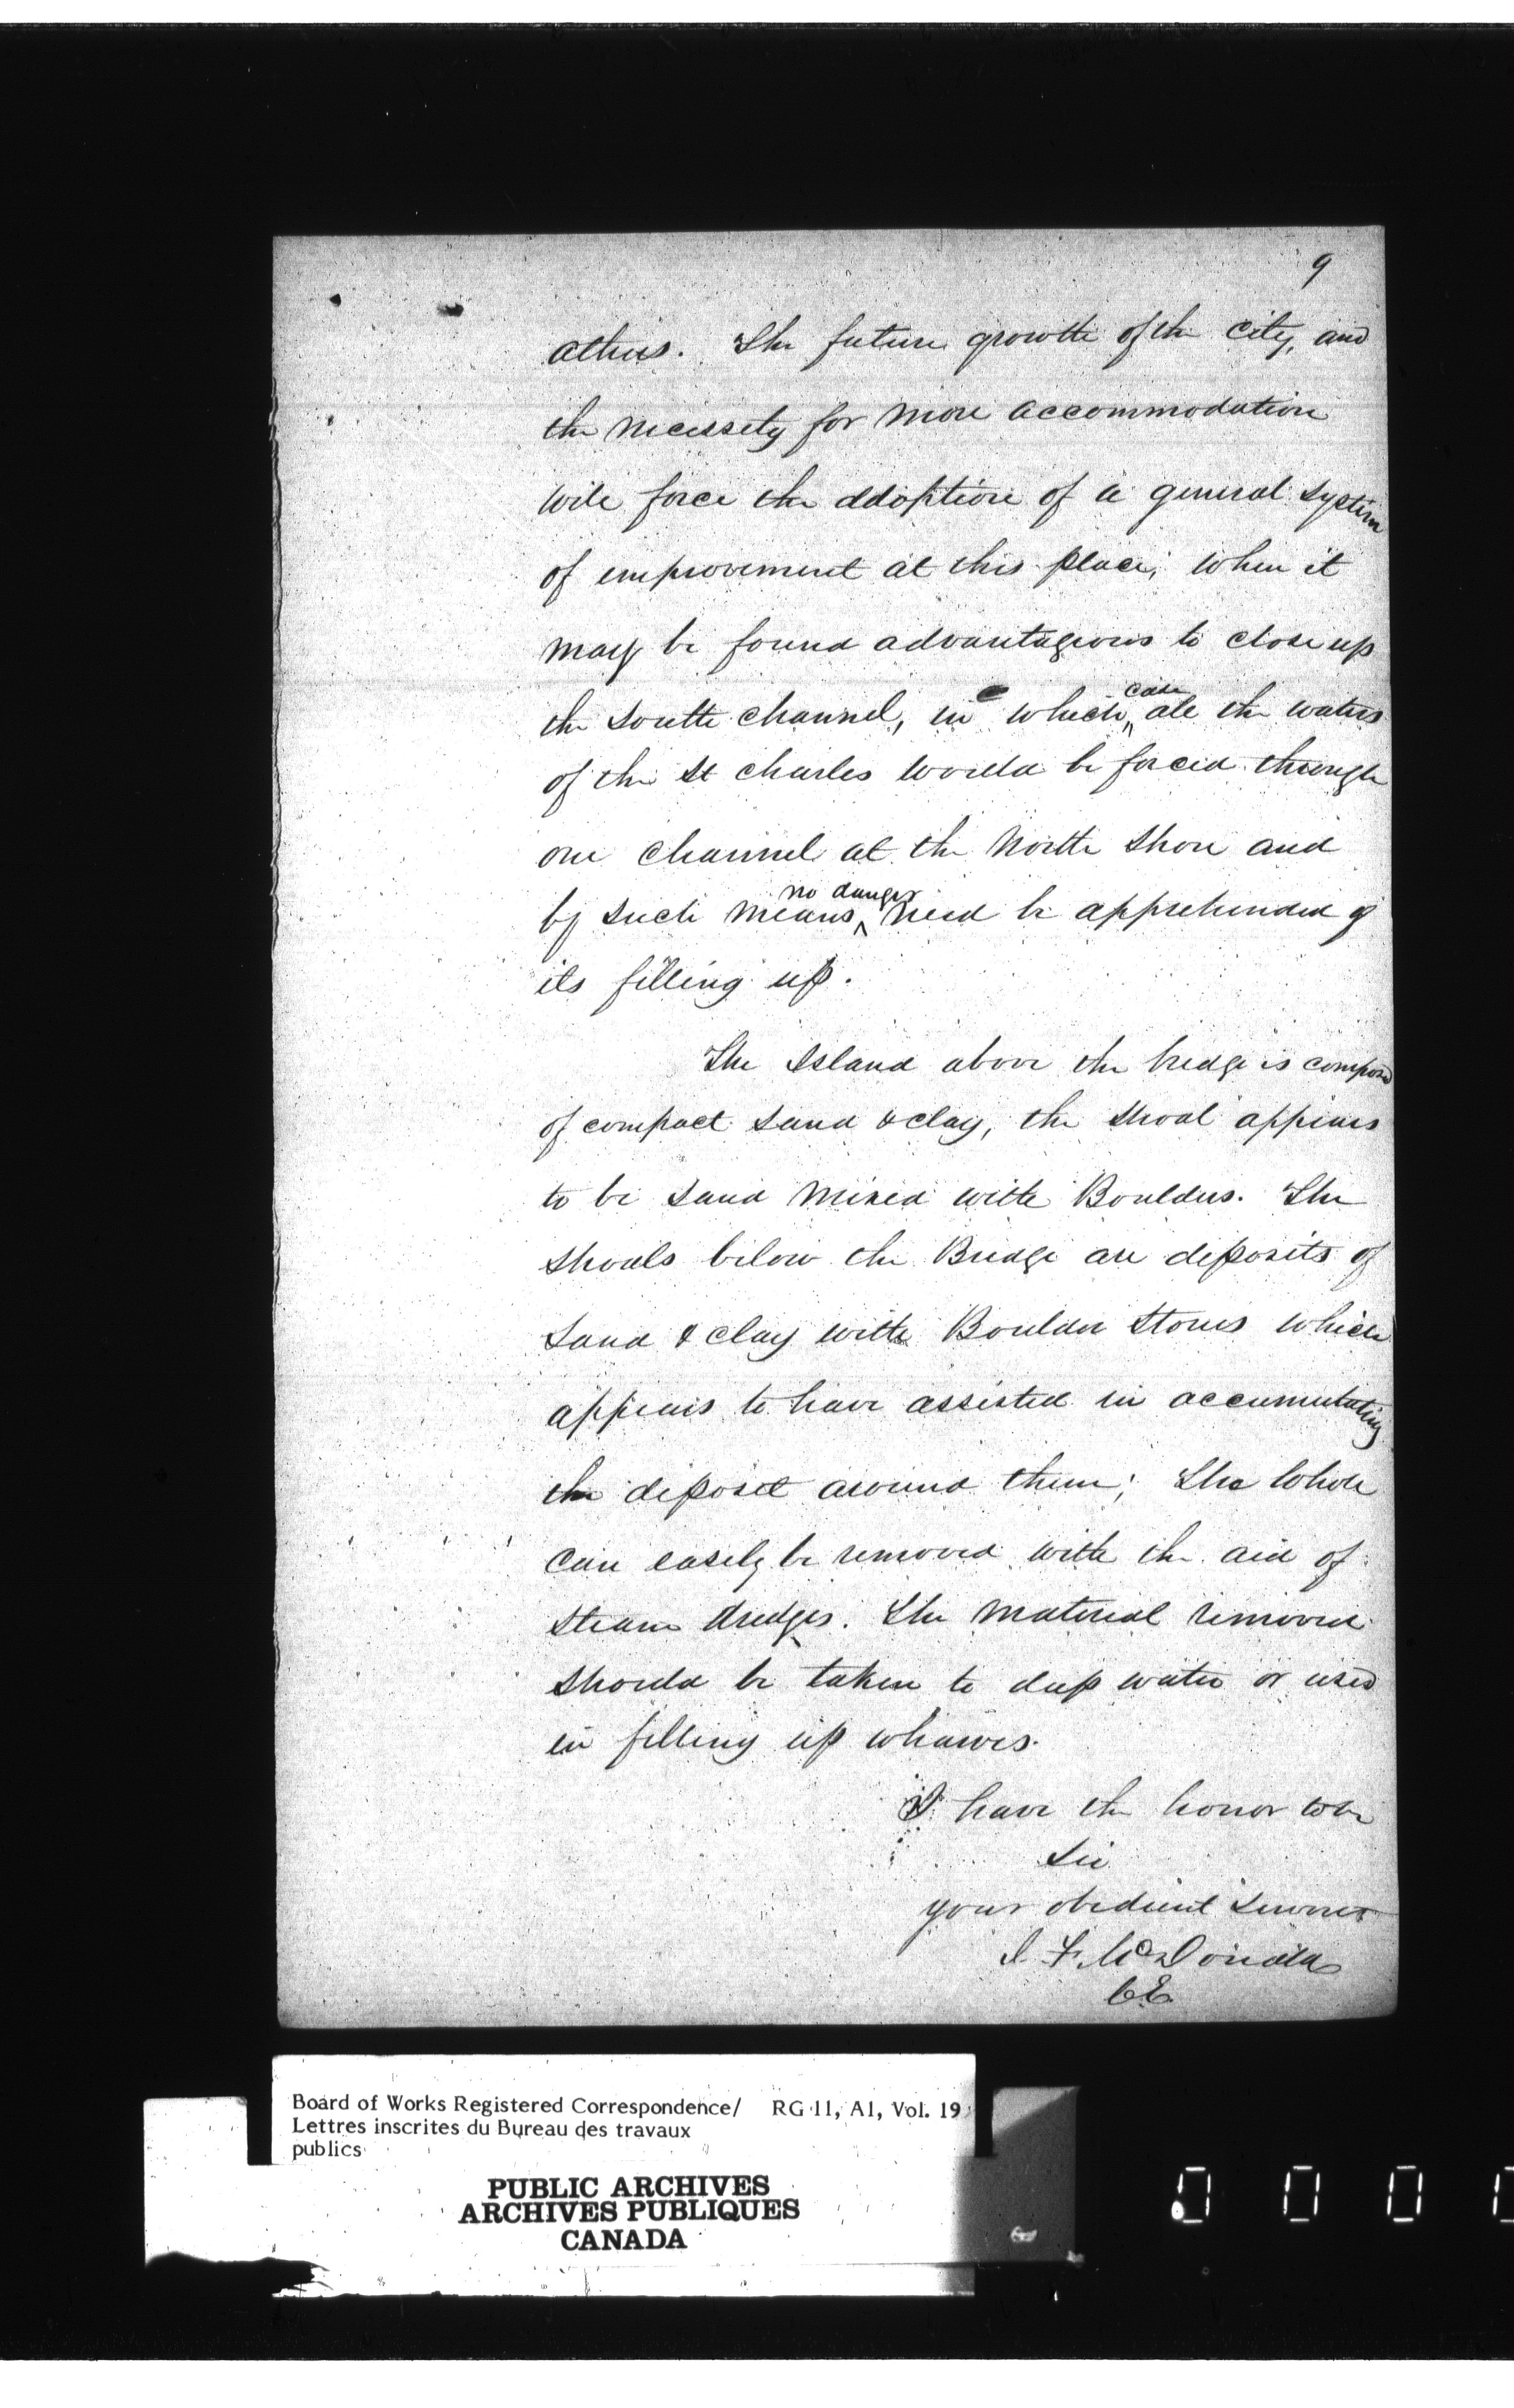 9
others. The future growth of the City, and
the necessity for more accommodation
will force the adoption of a general system
of improvement at this place; when it
may be found advantageous to close up
the South channel, in which case all the waters
of the St Charles would be forced through
one channel at the North Shore and
by such means no danger need be apprehended of
its filling up.
The Island above the bridge is composed
of compact sand & clay, the shoal appears
to be sand mixed with Boulders. The
shoals below the Bridge are deposits of
sand & clay with Boulder Stones which
appears to have assisted in accumulating
the deposit around them; The whole
can easily be removed with the aid of
steam dredges. The material removed
should be taken to deep water or used
in filling up wharves.
I have the honor to be
Sir
your obedient Servant
McDonald
CE
Board of Works Registered Correspondence/ RG 11, A1, Vol. 19
Lettres inscrites du Bureau des travaux
publics
PUBLIC ARCHIVES
ARCHIVES PUBLIQUES
CANADA
0 0 0 0